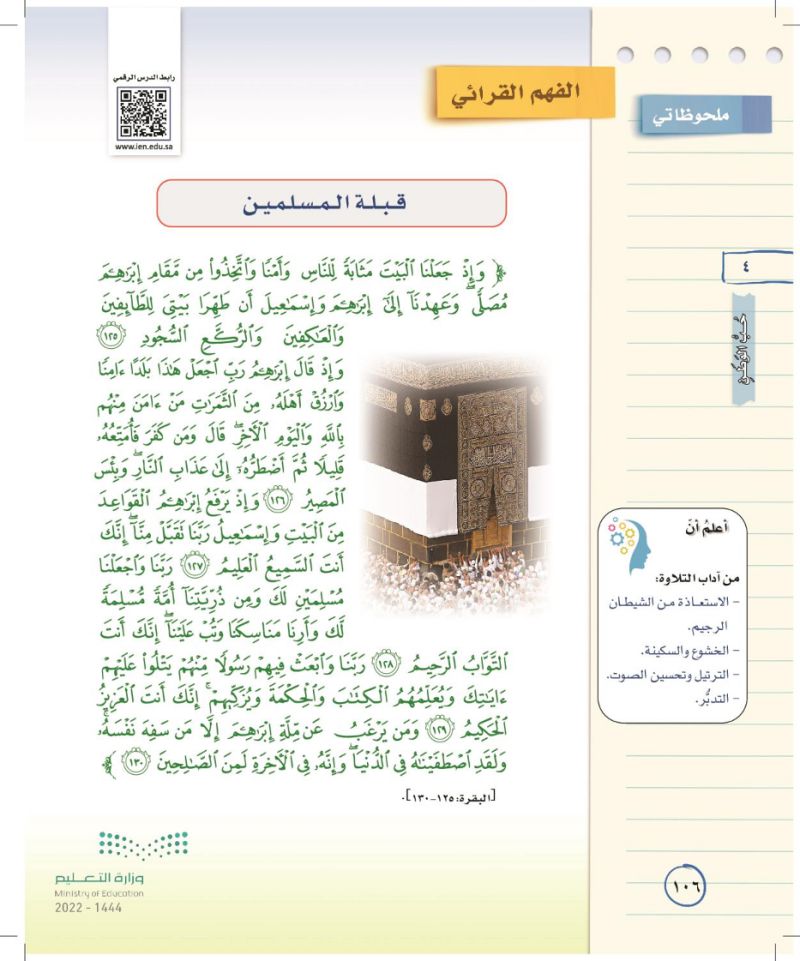 رابط الدرس الرقمي
www.ien.edu.sa
الفهم القرائي
ملحوظاتي
قبلة المسلمين
﴿ وَإِذْ جَعَلْنَا ٱلْبَيْتَ مَثَابَةً لِّلنَّاسِ وَأَمْنًا وَٱتَّخِذُوا۟ مِن مَّقَامِ إِبْرَٰهِـۧمَ
مُصَلًّى ۖ وَعَهِدْنَآ إِلَىٰٓ إِبْرَٰهِـۧمَ وَإِسْمَـٰعِيلَ أَن طَهِّرَا بَيْتِىَ لِلطَّآئِفِينَ
وَٱلْعَـٰكِفِينَ وَٱلرُّكَّعِ ٱلسُّجُودِ ١٢٥
وَإِذْ قَالَ إِبْرَٰهِـۧمُ رَبِّ ٱجْعَلْ هَـٰذَا بَلَدًا ءَامِنًا
وَٱرْزُقْ أَهْلَهُۥ مِنَ ٱلثَّمَرَٰتِ مَنْ ءَامَنَ مِنْهُم
بِٱللَّهِ وَٱلْيَوْمِ ٱلْـَٔاخِرِ ۖ قَالَ وَمَن كَفَرَ فَأُمَتِّعُهُۥ
قَلِيلًا ثُمَّ أَضْطَرُّهُۥٓ إِلَىٰ عَذَابِ ٱلنَّارِ ۖ وَبِئْسَ
ٱلْمَصِيرُ ١٢٦ وَإِذْ يَرْفَعُ إِبْرَٰهِـۧمُ ٱلْقَوَاعِدَ
مِنَ ٱلْبَيْتِ وَإِسْمَـٰعِيلُ رَبَّنَا تَقَبَّلْ مِنَّآ ۖ إِنَّكَ
أَنتَ ٱلسَّمِيعُ ٱلْعَلِيمُ ١٢٧ رَبَّنَا وَٱجْعَلْنَا
مُسْلِمَيْنِ لَكَ وَمِن ذُرِّيَّتِنَآ أُمَّةً مُّسْلِمَةً
لَّكَ وَأَرِنَا مَنَاسِكَنَا وَتُبْ عَلَيْنَآ ۖ إِنَّكَ أَنتَ
ٱلتَّوَّابُ ٱلرَّحِيمُ ١٢٨ رَبَّنَا وَٱبْعَثْ فِيهِمْ رَسُولًا مِّنْهُمْ يَتْلُوا۟ عَلَيْهِمْ
ءَايَـٰتِكَ وَيُعَلِّمُهُمُ ٱلْكِتَـٰبَ وَٱلْحِكْمَةَ وَيُزَكِّيهِمْ ۚ إِنَّكَ أَنتَ ٱلْعَزِيزُ
ٱلْحَكِيمُ ١٢٩ وَمَن يَرْغَبُ عَن مِّلَّةِ إِبْرَٰهِـۧمَ إِلَّا مَن سَفِهَ نَفْسَهُۥ ۚ
وَلَقَدِ ٱصْطَفَيْنَـٰهُ فِى ٱلدُّنْيَا ۖ وَإِنَّهُۥ فِى ٱلْـَٔاخِرَةِ لَمِنَ ٱلصَّـٰلِحِينَ ١٣٠ ﴾
[البقرة: ١٢٥-١٣٠].
٤
حُبُّ الوَطَنِ
أعلمُ أنَّ
من آداب التلاوة:
- الاستعاذة من الشيطان
الرجيم.
- الخشوع والسكينة.
- الترتيل وتحسين الصوت.
- التدبُّر.
وزارة التعـليم
Ministry of Education
2022 - 1444
١٠٦